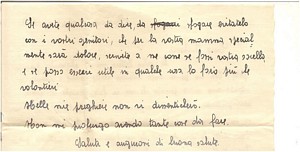 Se avete qualcosa da dire, da sfogare evitatelo
con i vostri genitori, che per la vostra mamma special
mente sarà dolore, scrivete a me come se fossi vostra sorella
e se posso esservi utile in qualche cosa lo farò più che
volentieri
Nelle mie preghiere non vi dimenticherò.
Non mi prolungo avendo tante cose da fare.
Saluti e auguroni di buona salute.